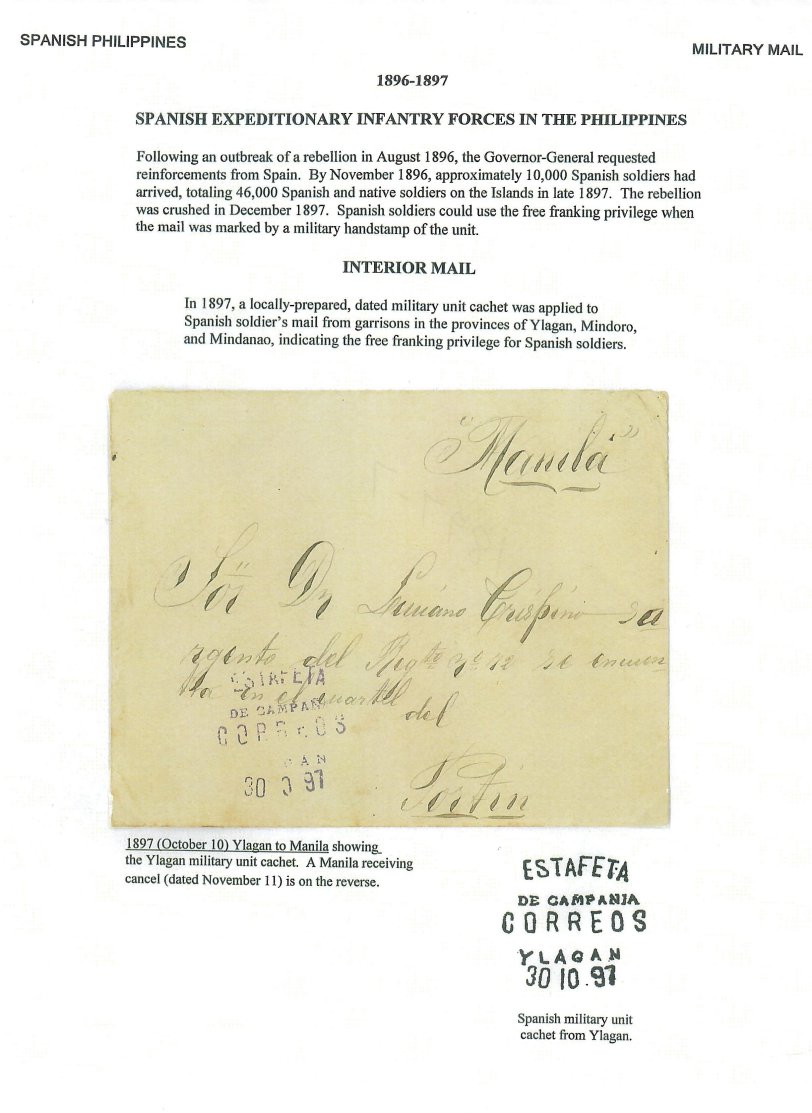 SPANISH PHILIPPINES
MILITARY MAIL
1896-1897
SPANISH EXPEDITIONARY INFANTRY FORCES IN THE PHILIPPINES
Following an outbreak of a rebellion in August 1896, the Governor-General requested
reinforcements from Spain. By November 1896, approximately 10,000 Spanish soldiers had
arrived, totaling 46,000 Spanish and native soldiers on the Islands in late 1897. The rebellion
was crushed in December 1897. Spanish soldiers could use the free franking privilege when
the mail was marked by a military handstamp of the unit.
INTERIOR MAIL
In 1897, a locally-prepared, dated military unit cachet was applied to
Spanish soldier's mail from garrisons in the provinces of Ylagan, Mindoro,
and Mindanao, indicating the free franking privilege for Spanish soldiers.
"Manila"
Sor Dn Luciano Crispino Sa
rgento del Regto se encuen
tra en el cuartel
del
Fortin
ESTAFETA
DE CAMPAÑ
CORREOS
GAN
30 97
1897 (October 10) Ylagan to Manila showing
the Ylagan military unit cachet. A Manila receiving
cancel (dated November 11) is on the reverse.
ESTAFETA
DE CAMPAÑIA
CORREOS
YLAGAN
30 10.97
Spanish military unit
cachet from Ylagan.